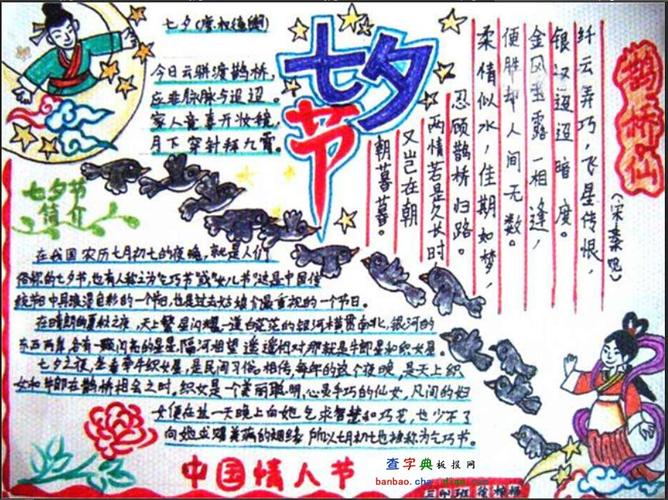 七夕节
七夕(唐 权德舆)
今日云骈渡鹊桥,
应非脉脉与迢迢。
家人竟喜开妆镜,
月下穿针拜九霄。
鹊桥仙
(宋 秦观)
纤云弄巧,飞星传恨,
银汉迢迢暗度。
金风玉露一相逢,
便胜却人间无数。
柔情似水,佳期如梦,
忍顾鹊桥归路。
两情若是久长时,
又岂在朝
朝暮暮。
七夕节
简介
在我国,农历七月初七的夜晚,就是人们
俗称的七夕节,也有人称之为“乞巧节”或“女儿节”这是中国传
统节日中具浪漫色彩的一个节日,也是过去姑娘们最重视的一个节日。
在晴朗的夏秋之夜,天上繁星闪耀一道白茫茫的银河横贯南北,银河的
东西两岸,各有一颗闪亮的星星,隔河相望,遥遥相对那就是牛郎星和织女星。
七夕之夜,坐看牵牛织女星,是民间习俗。相传,每年的这个夜晚,是天上织
女和牛郎在鹊桥相会之时。织女是一个美丽聪明,心灵手巧的仙女,凡间的妇
女便在这一天晚上向她乞求智慧和巧艺,也少不了
向她求赐美满的姻缘,所以七月初七也被称为乞巧节。
中国情人节
查字典板报网